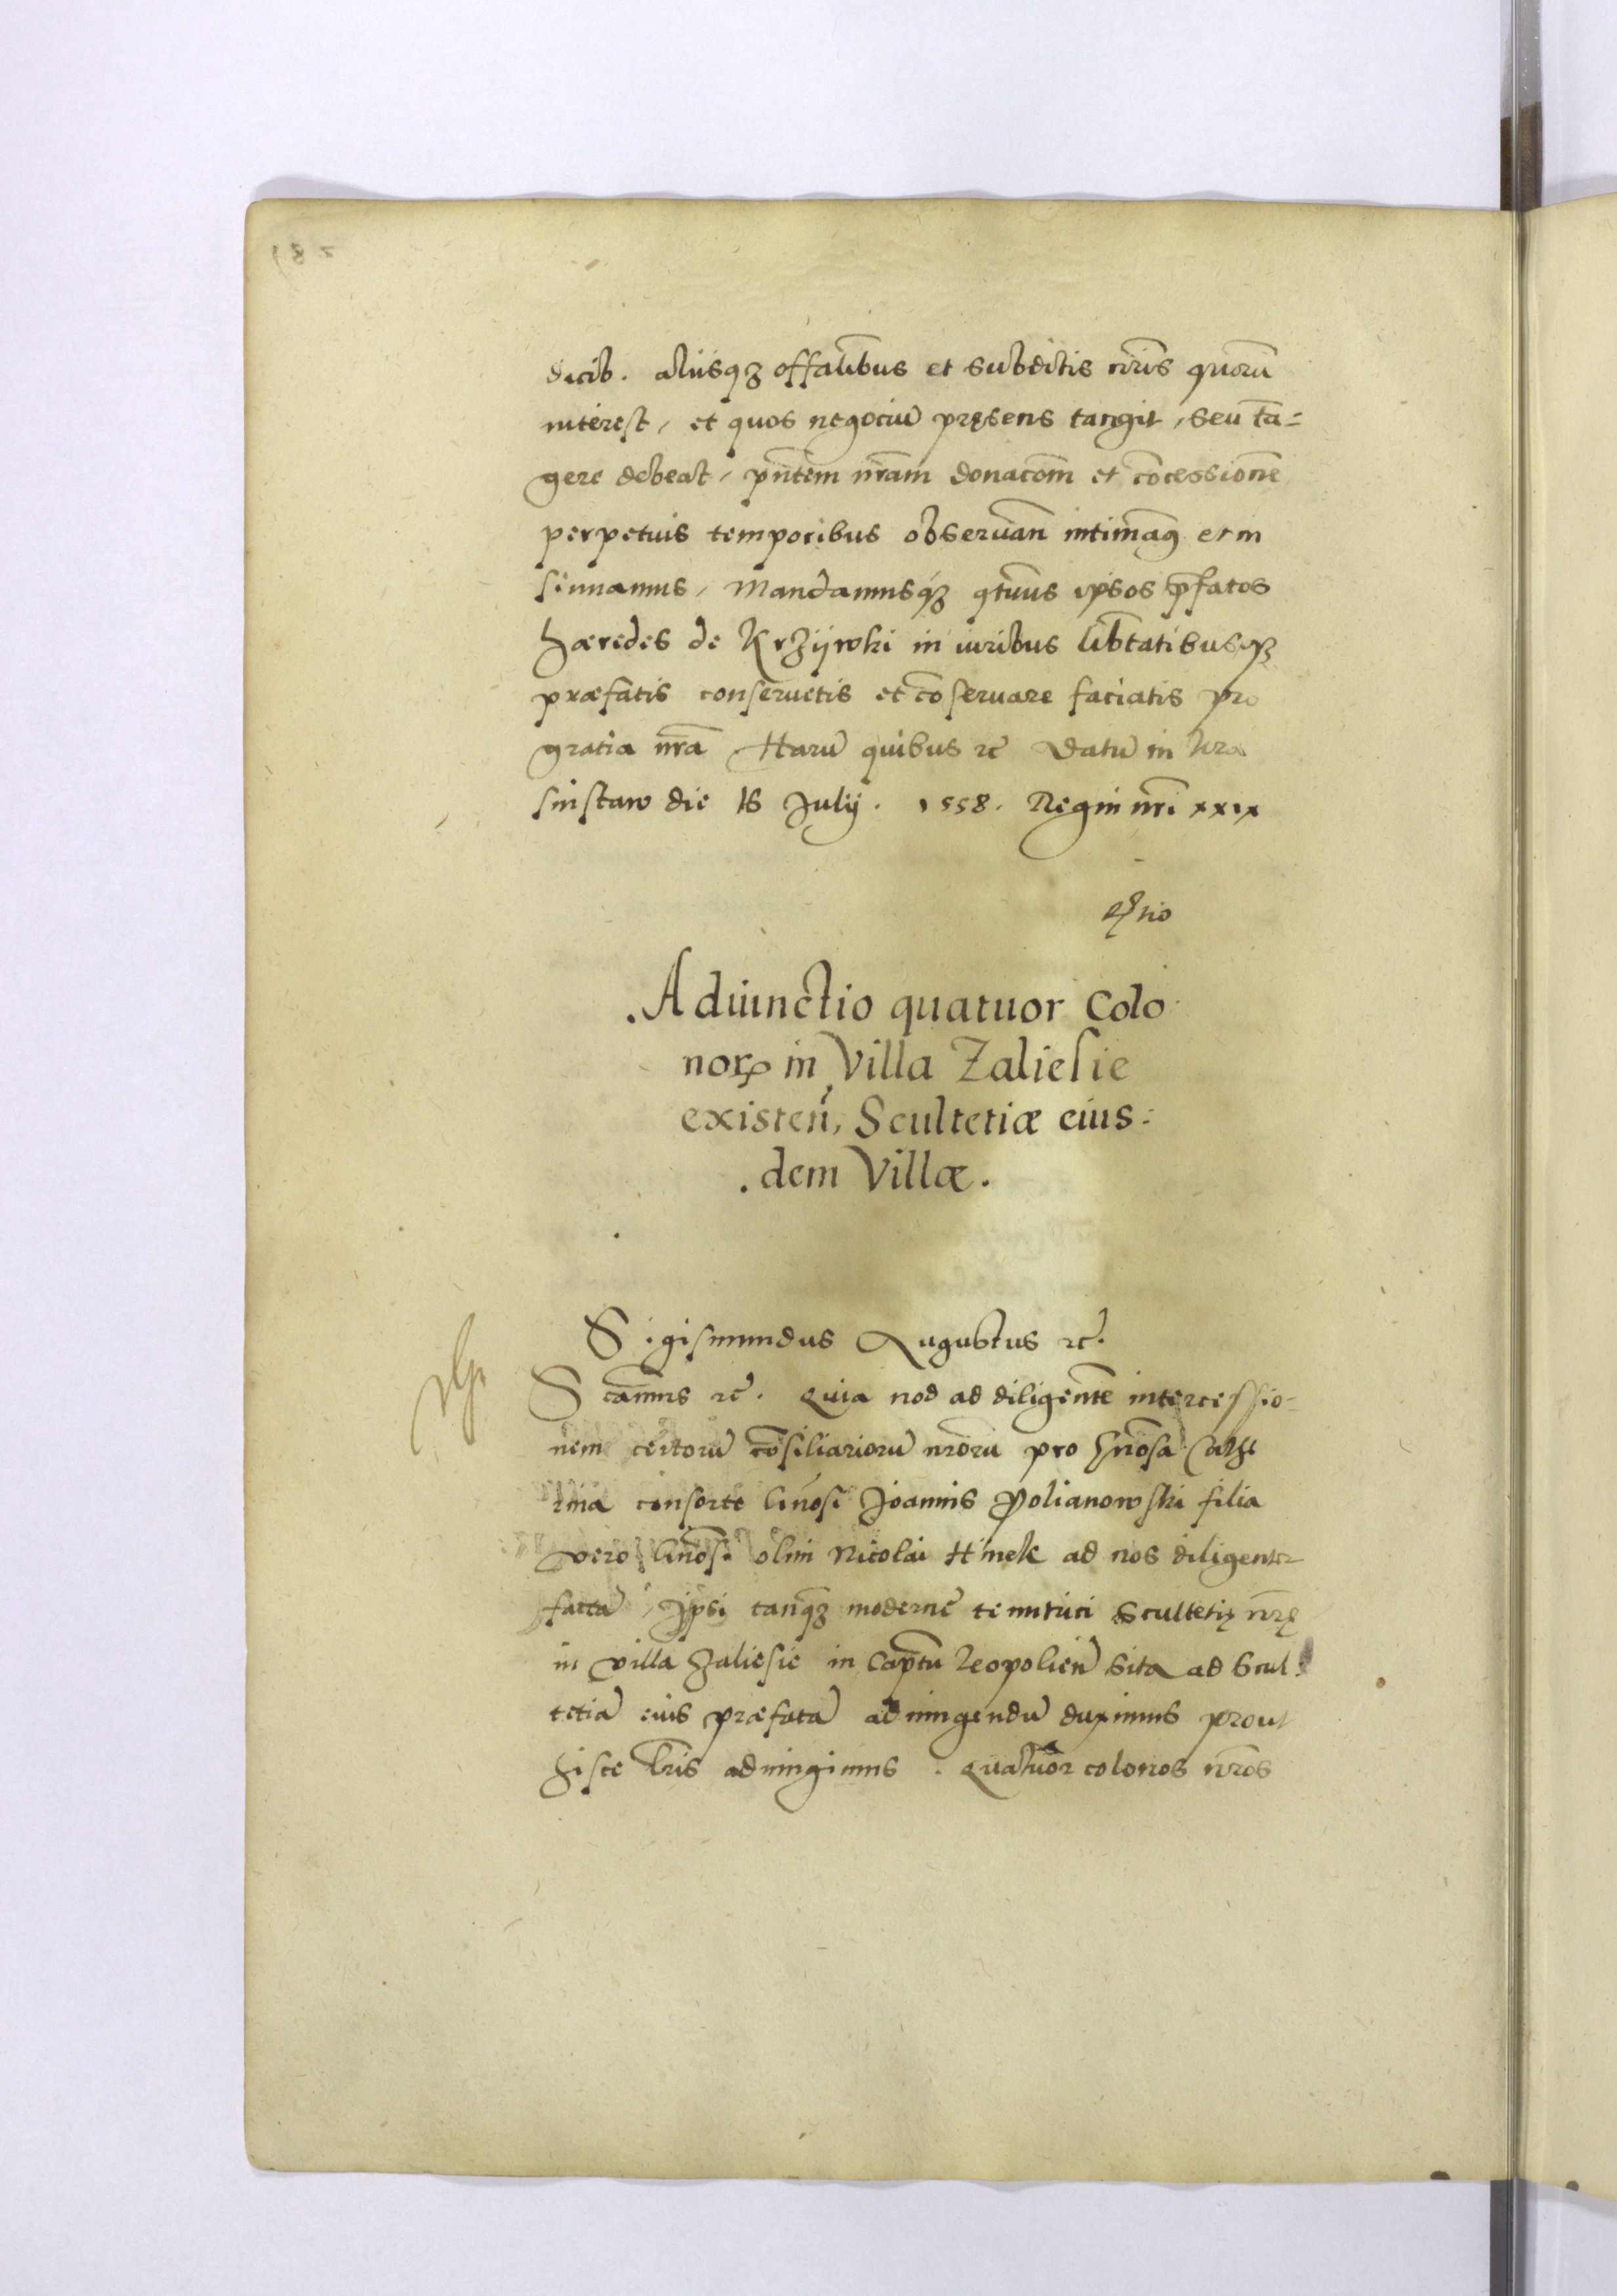 dicib. aliisqꝫ offalibus et subditis nris quorū
interest, et quos negociū pręsens tangit, seu tā-
gere debeat, pntem nram donacom et cocessione
perpetuis temporibus obseruan intimaꝗ et in
sinuamus, Mandamusqꝫ qtuus ipsos pfatos
hæredes de Krzijwki in iuribus libtatibusqꝫ
præfatis conseruetis et coseruare faciatis pro
gratia nra Harū quibus ꝛc Datū in Kra
snistaw die 16 Julij. 1558. Regni nri xxix
Adiunctio quatuor Colo
norꝝ in Villa Zaliesie
existen, Scultetiæ eius-
dem Villæ.
Sigismundus Augustus ꝛc.
S canmus ꝛc. Quia nos ad diligentē intercessio-
nem certorū cosiliariorū nrorū pro Gnosa Cathe
rina consorte Gnosi Joannis Polianowski filia
vero Gnosi olim Nicolai Hinek ad nos diligenter
factā, Ipsi tanqꝫ moderne tenutrici Scultetię nrę
in villa Zaliesie in Captu Leopolien sita ad Scul-
tetiā eius præfatā adiungendū duximus prout
hisce lris adiungimus. Quatuor colonos nros